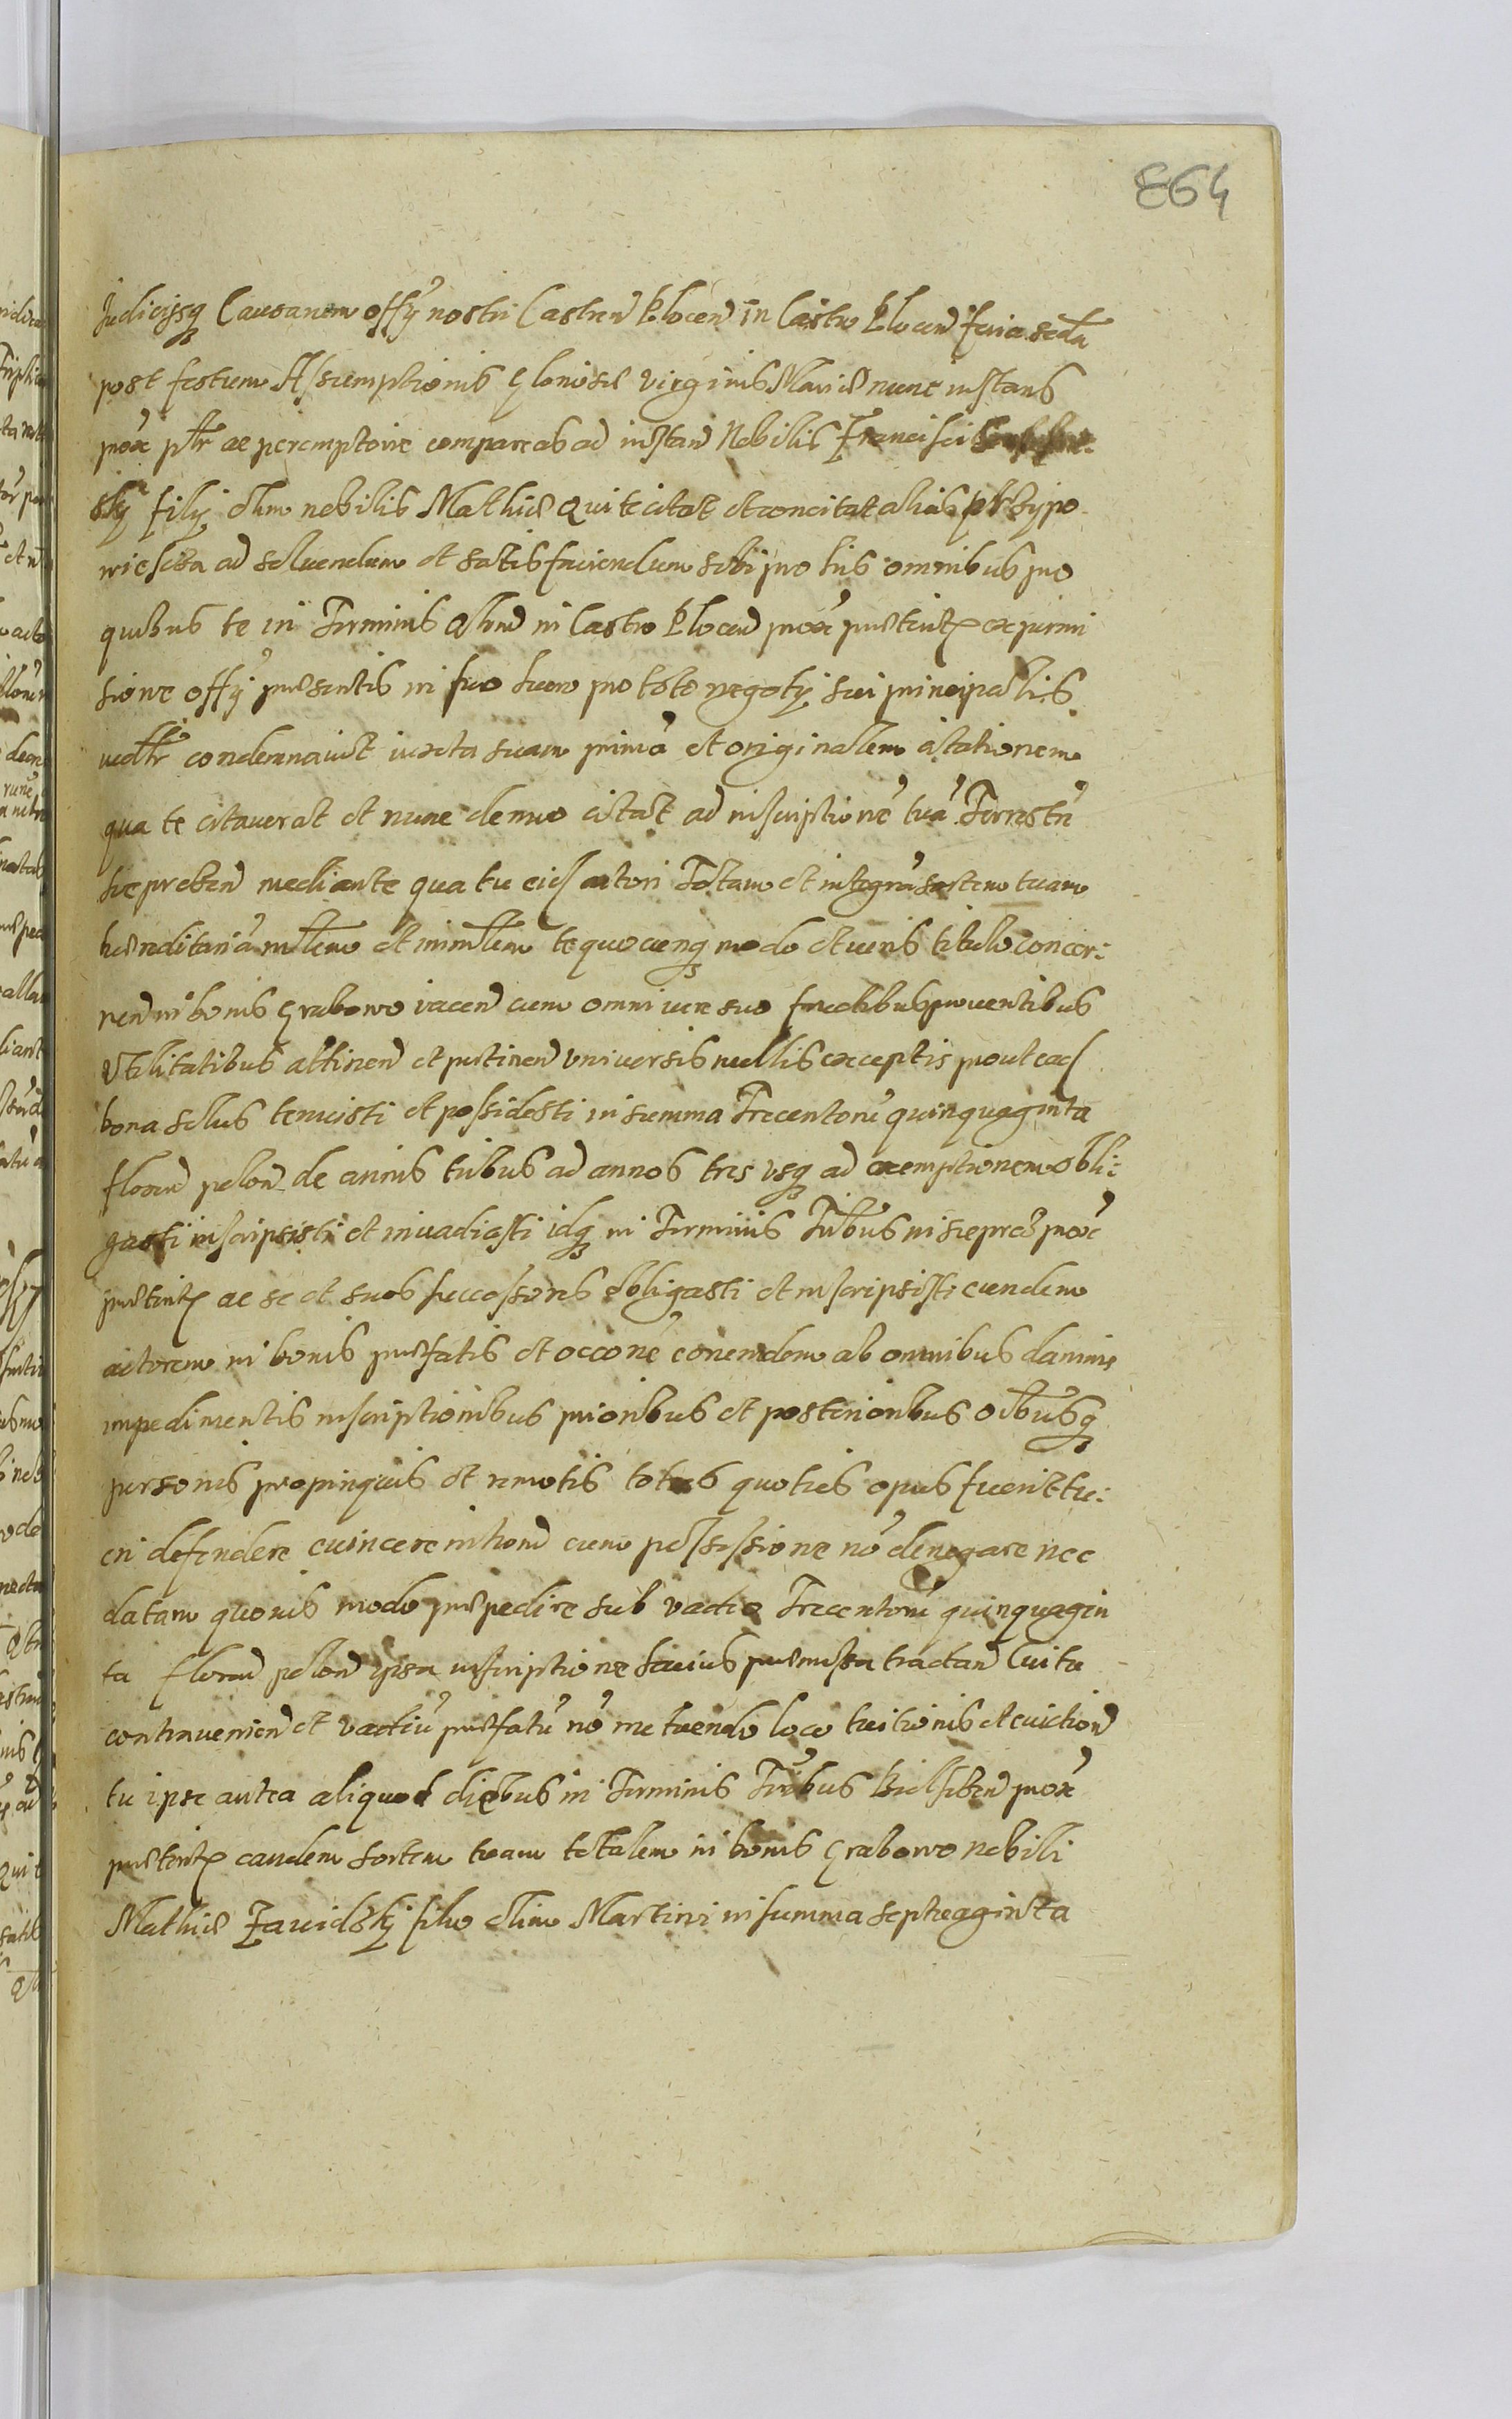 864
Judicijsq Causarum offȳ nostri Castren Plocen in Castro Plocen feria scda
post festum Assumptionis Gloriosæ Virginis Mariæ nunc instans
prox ptr ac peremptorie compareas ad instan Nobilis Francisci
skj filij olim nobilis Mathiæ Qui te citat et concitat alias
ad soluendum et satisfaciendum sibi pro his omnibus pro
quibus te in Terminis qlem in Castro Plocen prox præteritz ex permi
sione offȳ præsentis in suo lucro pro toto negotij sui principalis
condemnauit iuxta suam primā et originalem citationem
qua te citauerat et nunc denuo citat ad inscriptionē tuā Terrestrē
Sieprcen mediante qua tu eid actori Totam et integrā sortem tuam
hæreditariā te quocunq modo et iuris titulo concer:
nen in bonis Grabowo iacen cum omni iure suo fructibus prouentibus
Vtilitatibus attinen et pertinen vniuersis nullis exceptis prout ead
bona solus tenuisti et possidesti in summa Trecentorū quinquaginta
floren polon de annis tribus ad annos tres vsq ad exemptionem obli:
gasti inscripsisti et inuadiasti idq in Terminis Trībus in Sieprc prox
præteritz ac se et suos successores obligasti et inscripsisti eundem
actorem in bonis præfatis et occone eorundem ab omnibus damnis
impedimentis inscriptionibus prioribus et posterioribus oībusq
personis propinquis et remotis toties quoties opus fuerit tu:
eri defendere euincere intromi cum possessione nō denegare nec
datam quouis modo præpedire sub vadio Trecentorū quinquagin
ta floren polon ipsa inscriptione latius præmissa tractan Cui tu
contraueniend et vadiū præfatū nō metuendo loco tuitionis et euiction
tu ipse antea aliquod diebus in Terminis Trībus Bielscen prox
præteritz eandem sortem tuam totalem in bonis Grabowo nobili
Mathiæ Zauidskj filio olim Martini in summa septuaginta